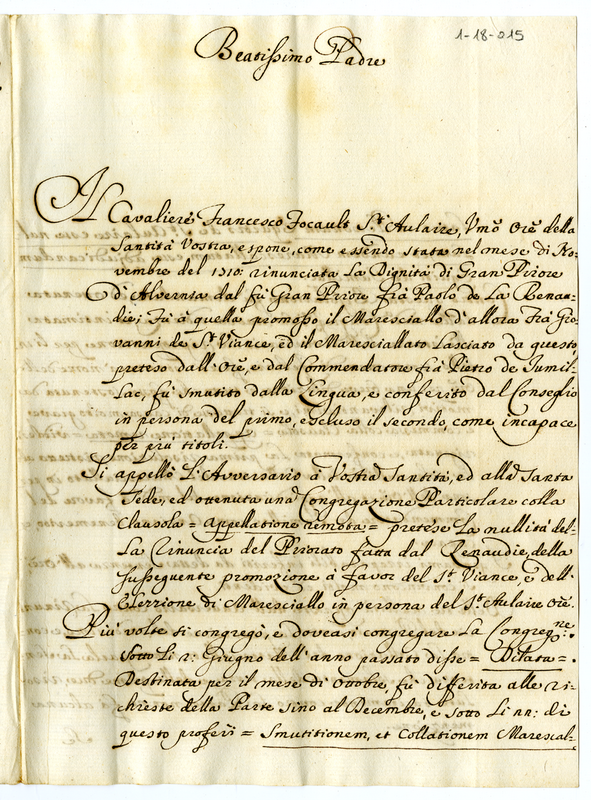 1-18-015
Beatissimo Padre
Il Cavaliere Francesco Focault S.t Aulaire, Vmõ Orẽ della
Santità Vostra, espone, come essendo stata nel mese di No:
vembre del 1710: rinunciata La Dignità di Gran Priore
d'Alvernia dal fù Gran Priore frà Paolo de La Renau-
die; Fù à quella promosso il Maresciallo d'allora Frà Gio
vanni de S.t Viance, ed il Marescialato Lasciato da questo,
preteso dall'Orẽ, e dal Commendatore frà Pietro de Jumil-
Lac, fù smutito dalla Lingua, e conferito dal Conseglio
in persona del primo, escluso il secondo, come incapace
per più titoli.
Si appellò L'Avversario à Vostra Santità, ed alla Santa
Sede, ed ottenuta una Congregazione Particolare colla
Clausola = Appellatione remota = pretese La nullità del-
La Rinuncia del Priorato fatta dal Renaudie, della
susseguente promozione à favor del S.t Viance, e dell'
Elezzione di Maresciallo in persona del S.t Aulaire Orẽ.
Più volte si congregò, e doveasi congregare La Congreg.ne:
Sotto Li 2: Giugno dell'anno passato disse = Dilata =.
Destinata per il mese di Ottobre, fù differita alle ri-
chieste della Parte sino al Decembre, e sotto Li 11: di
questo proferì = Smutitionem, et Collationem Marescal-